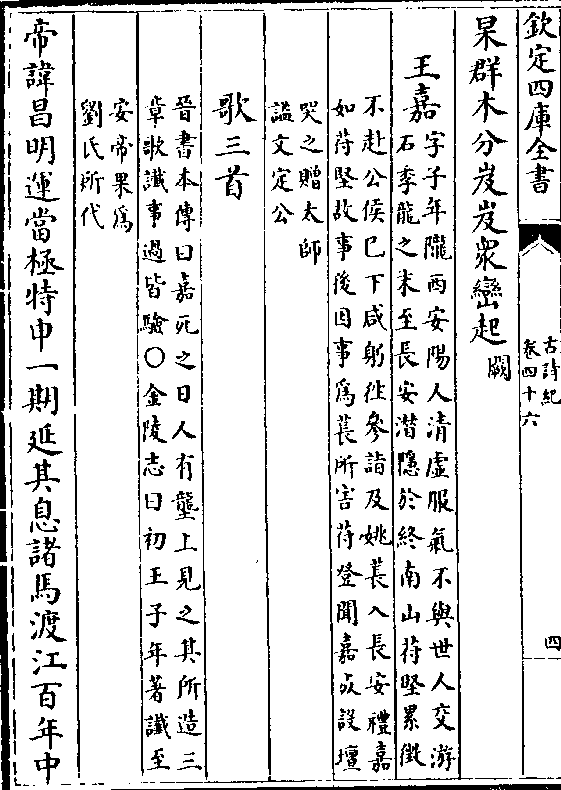 欽定四庫全書
古詩紀
卷四十六
四
杲群木分岌岌衆巒起闕
王嘉
字子年隴西安陽人清虛服氣不與世人交游
石季龍之末至長安潜隱於終南山苻堅累徴
不赴公侯已下咸躬徃參詣及姚萇入長安禮嘉
如苻堅故事後因事為萇所害苻登聞嘉死設壇
哭之贈太師
諡文定公
歌三首
晉書本傳曰嘉死之日人有壟上見之其所造三
章歌讖事過皆驗○金陵志曰初王子年著讖至
安帝果為
劉氏所代
帝諱昌明運當極特申一期延其息諸馬渡江百年中